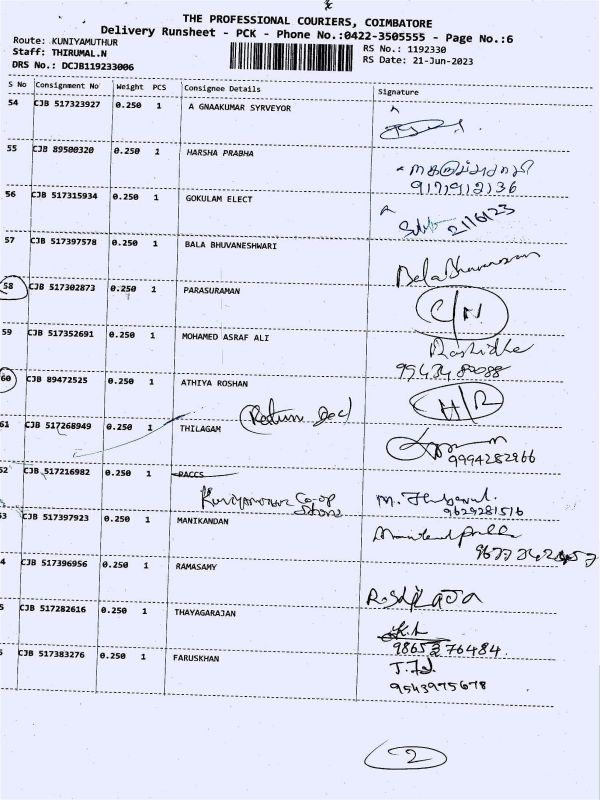 THE PROFESSIONAL COURIERS, COIMBATORE
Delivery Runsheet - PCK - Phone No.:0422-3505555 - Page No.:6
Route: KUNIYAMUTHUR
Staff: THIRUMAL.N
DRS No.: DCJB119233006
RS No.: 1192330
RS Date: 21-Jun-2023
S No Consignment No Weight PCS Consignee Details Signature
54 CJB 517323927 0.250 1 A GNAAKUMAR SYRVEYOR
55 CJB 89500320 0.250 1 HARSHA PRABHA
56 CJB 517315934 0.250 1 GOKULAM ELECT 21/6/23
57 CJB 517397578 0.250 1 BALA BHUVANESHWARI
58 CJB 517302873 0.250 1 PARASURAMAN C/N
59 CJB 517352691 0.250 1 MOHAMED ASRAF ALI Rashidha
60 CJB 89472525 0.250 1 ATHIYA ROSHAN H/R
61 CJB 517268949 0.250 1 THILAGAM Return Doc
9994282966
52 CJB 517216982 0.250 1 PACCS
Co-op
Store
9629281516
53 CJB 517397923 0.250 1 MANIKANDAN
4 CJB 517396956 0.250 1 RAMASAMY
5 CJB 517282616 0.250 1 THAYAGARAJAN
76484
CJB 517383276 0.250 1 FARUSKHAN
9543975678
2